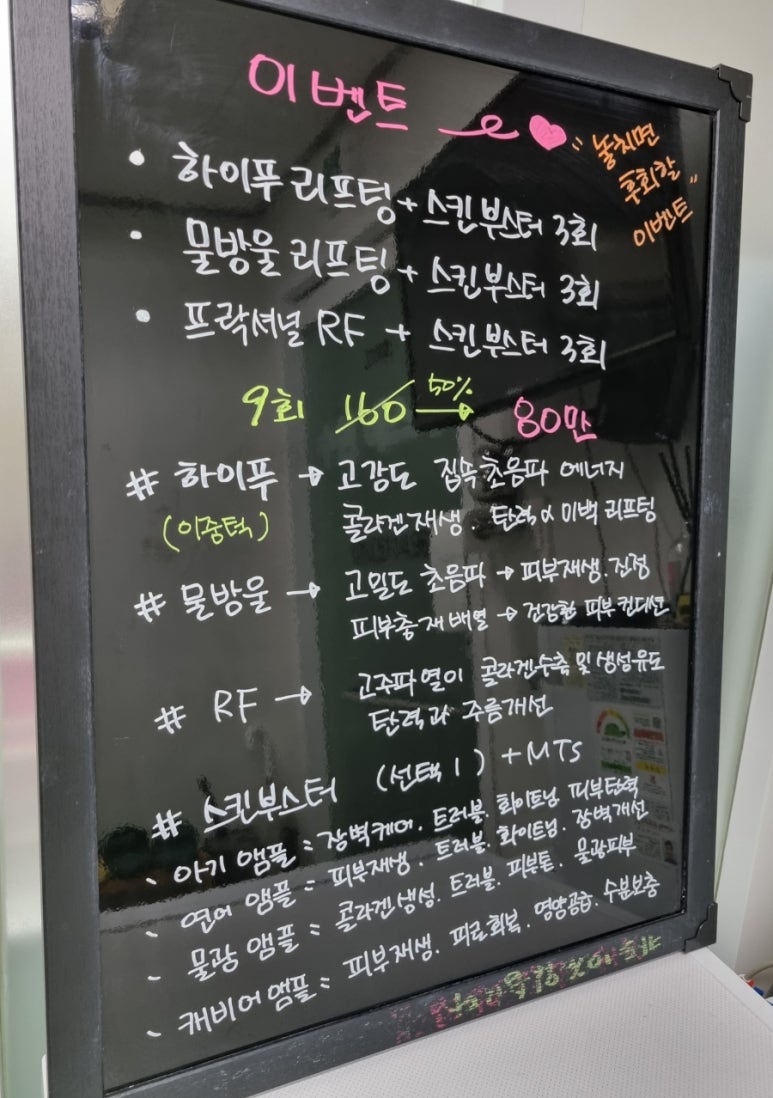 이벤트
"놓치면
후회할
이벤트"
• 하이푸 리프팅 + 스킨부스터 3회
• 물방울 리프팅 + 스킨부스터 3회
• 프락셔널 RF + 스킨부스터 3회
9회 160 50% → 80만
# 하이푸 → 고강도 집속초음파 에너지
(이중턱) 콜라겐재생. 탄력 미백 리프팅
# 물방울 → 고밀도 초음파 → 피부재생.진정
피부층재배열 → 건강한 피부컨디션
# RF → 고주파열이 콜라겐수축 및 생성유도
탄력과 주름개선
# 스킨부스터 (선택 1) + MTS
\ 아기 앰플 : 장벽케어. 트러블. 화이트닝 피부탄력
\ 연어 앰플 : 피부재생. 트러블. 화이트닝. 장벽개선
\ 물광 앰플 : 콜라겐생성. 트러블. 피부톤. 물광피부
\ 캐비어앰플 : 피부재생. 피로회복. 영양공급. 수분보충